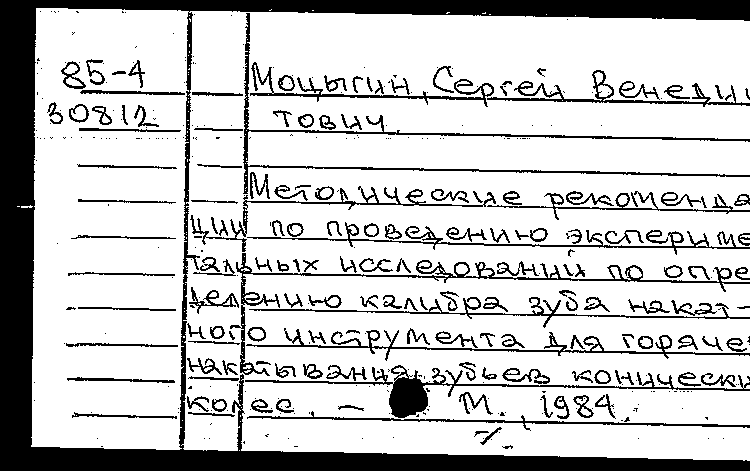 85-4 Моцыгин, Сергей Венедик
30812 тович.
Методические рекоменда
ции по проведению эксперимен
тальных исследований по опре
делению калибра зуба накат-
ного инструмента для горячего
накатывания зубьев конических
колес. — М., 1984.